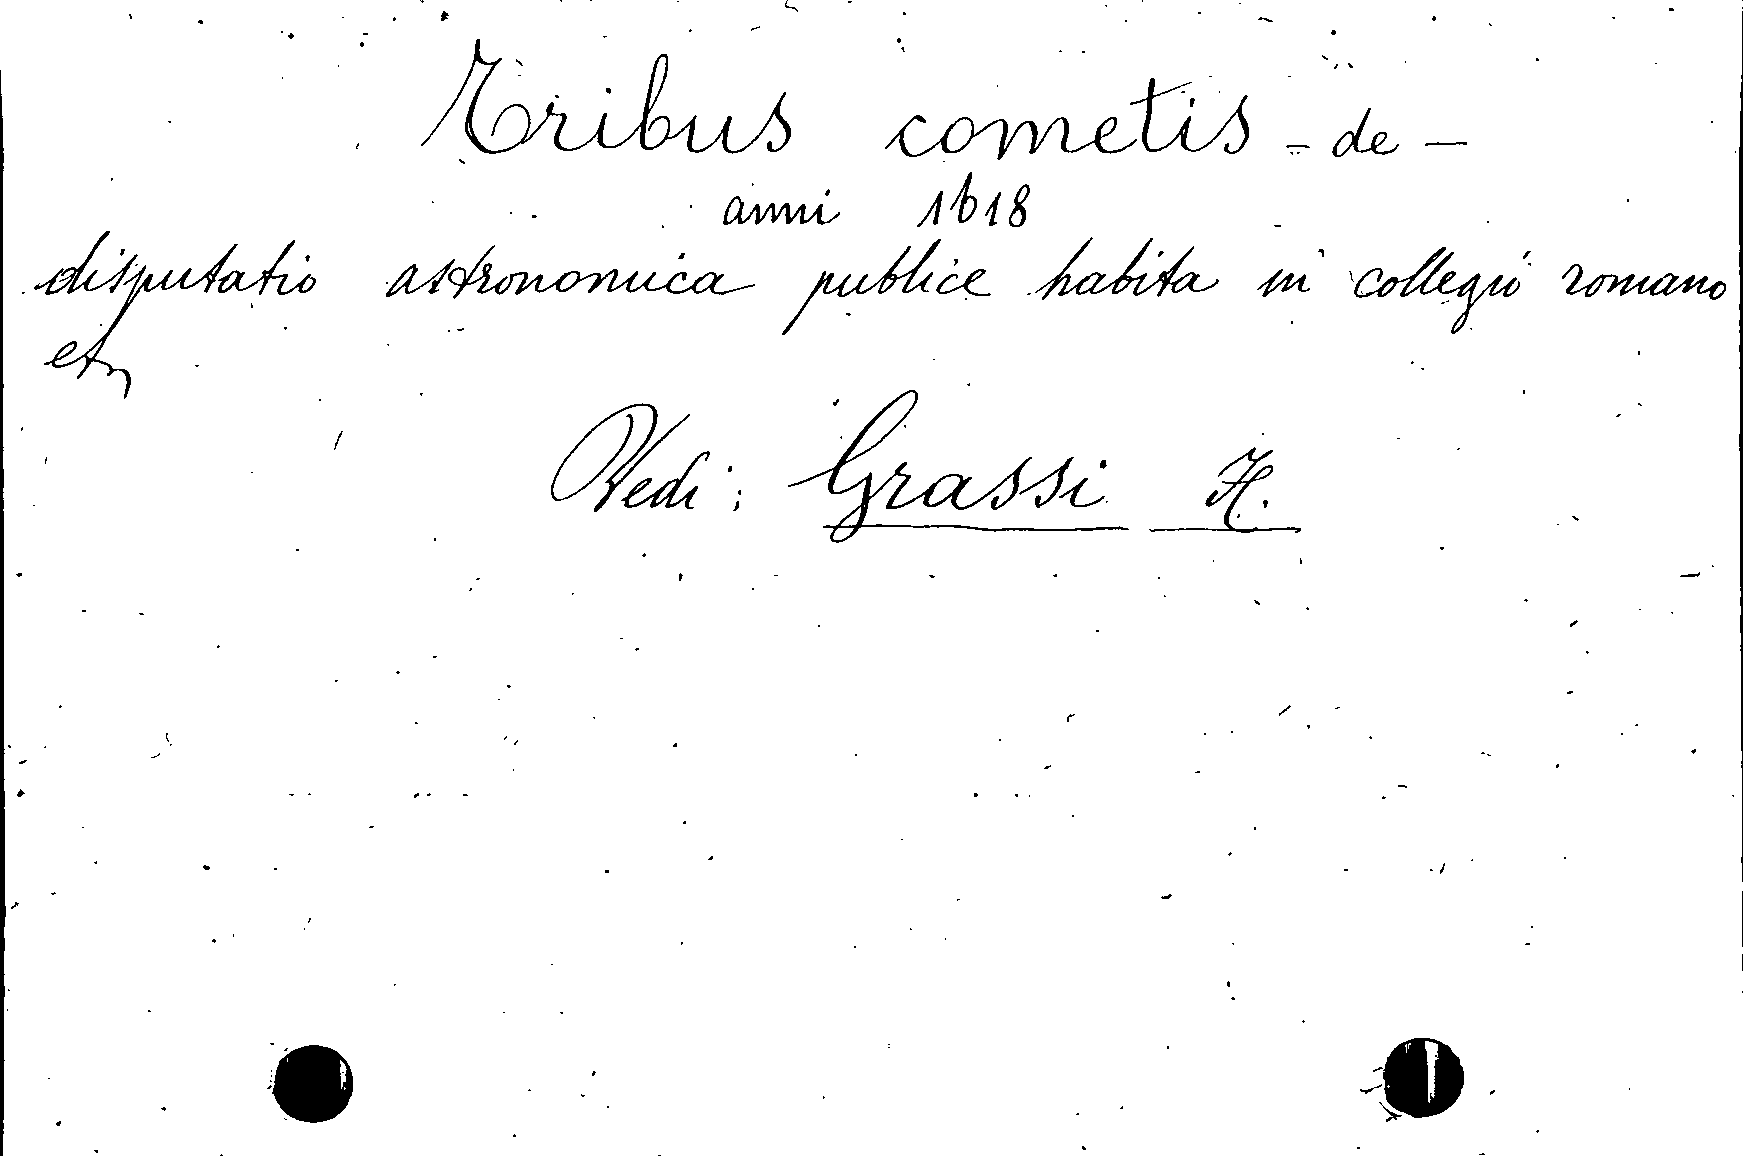 Tribus cometis - de -
anni 1618
disputatio astronomica publice habita in collegio romano
etc
Vedi: Grassi H.